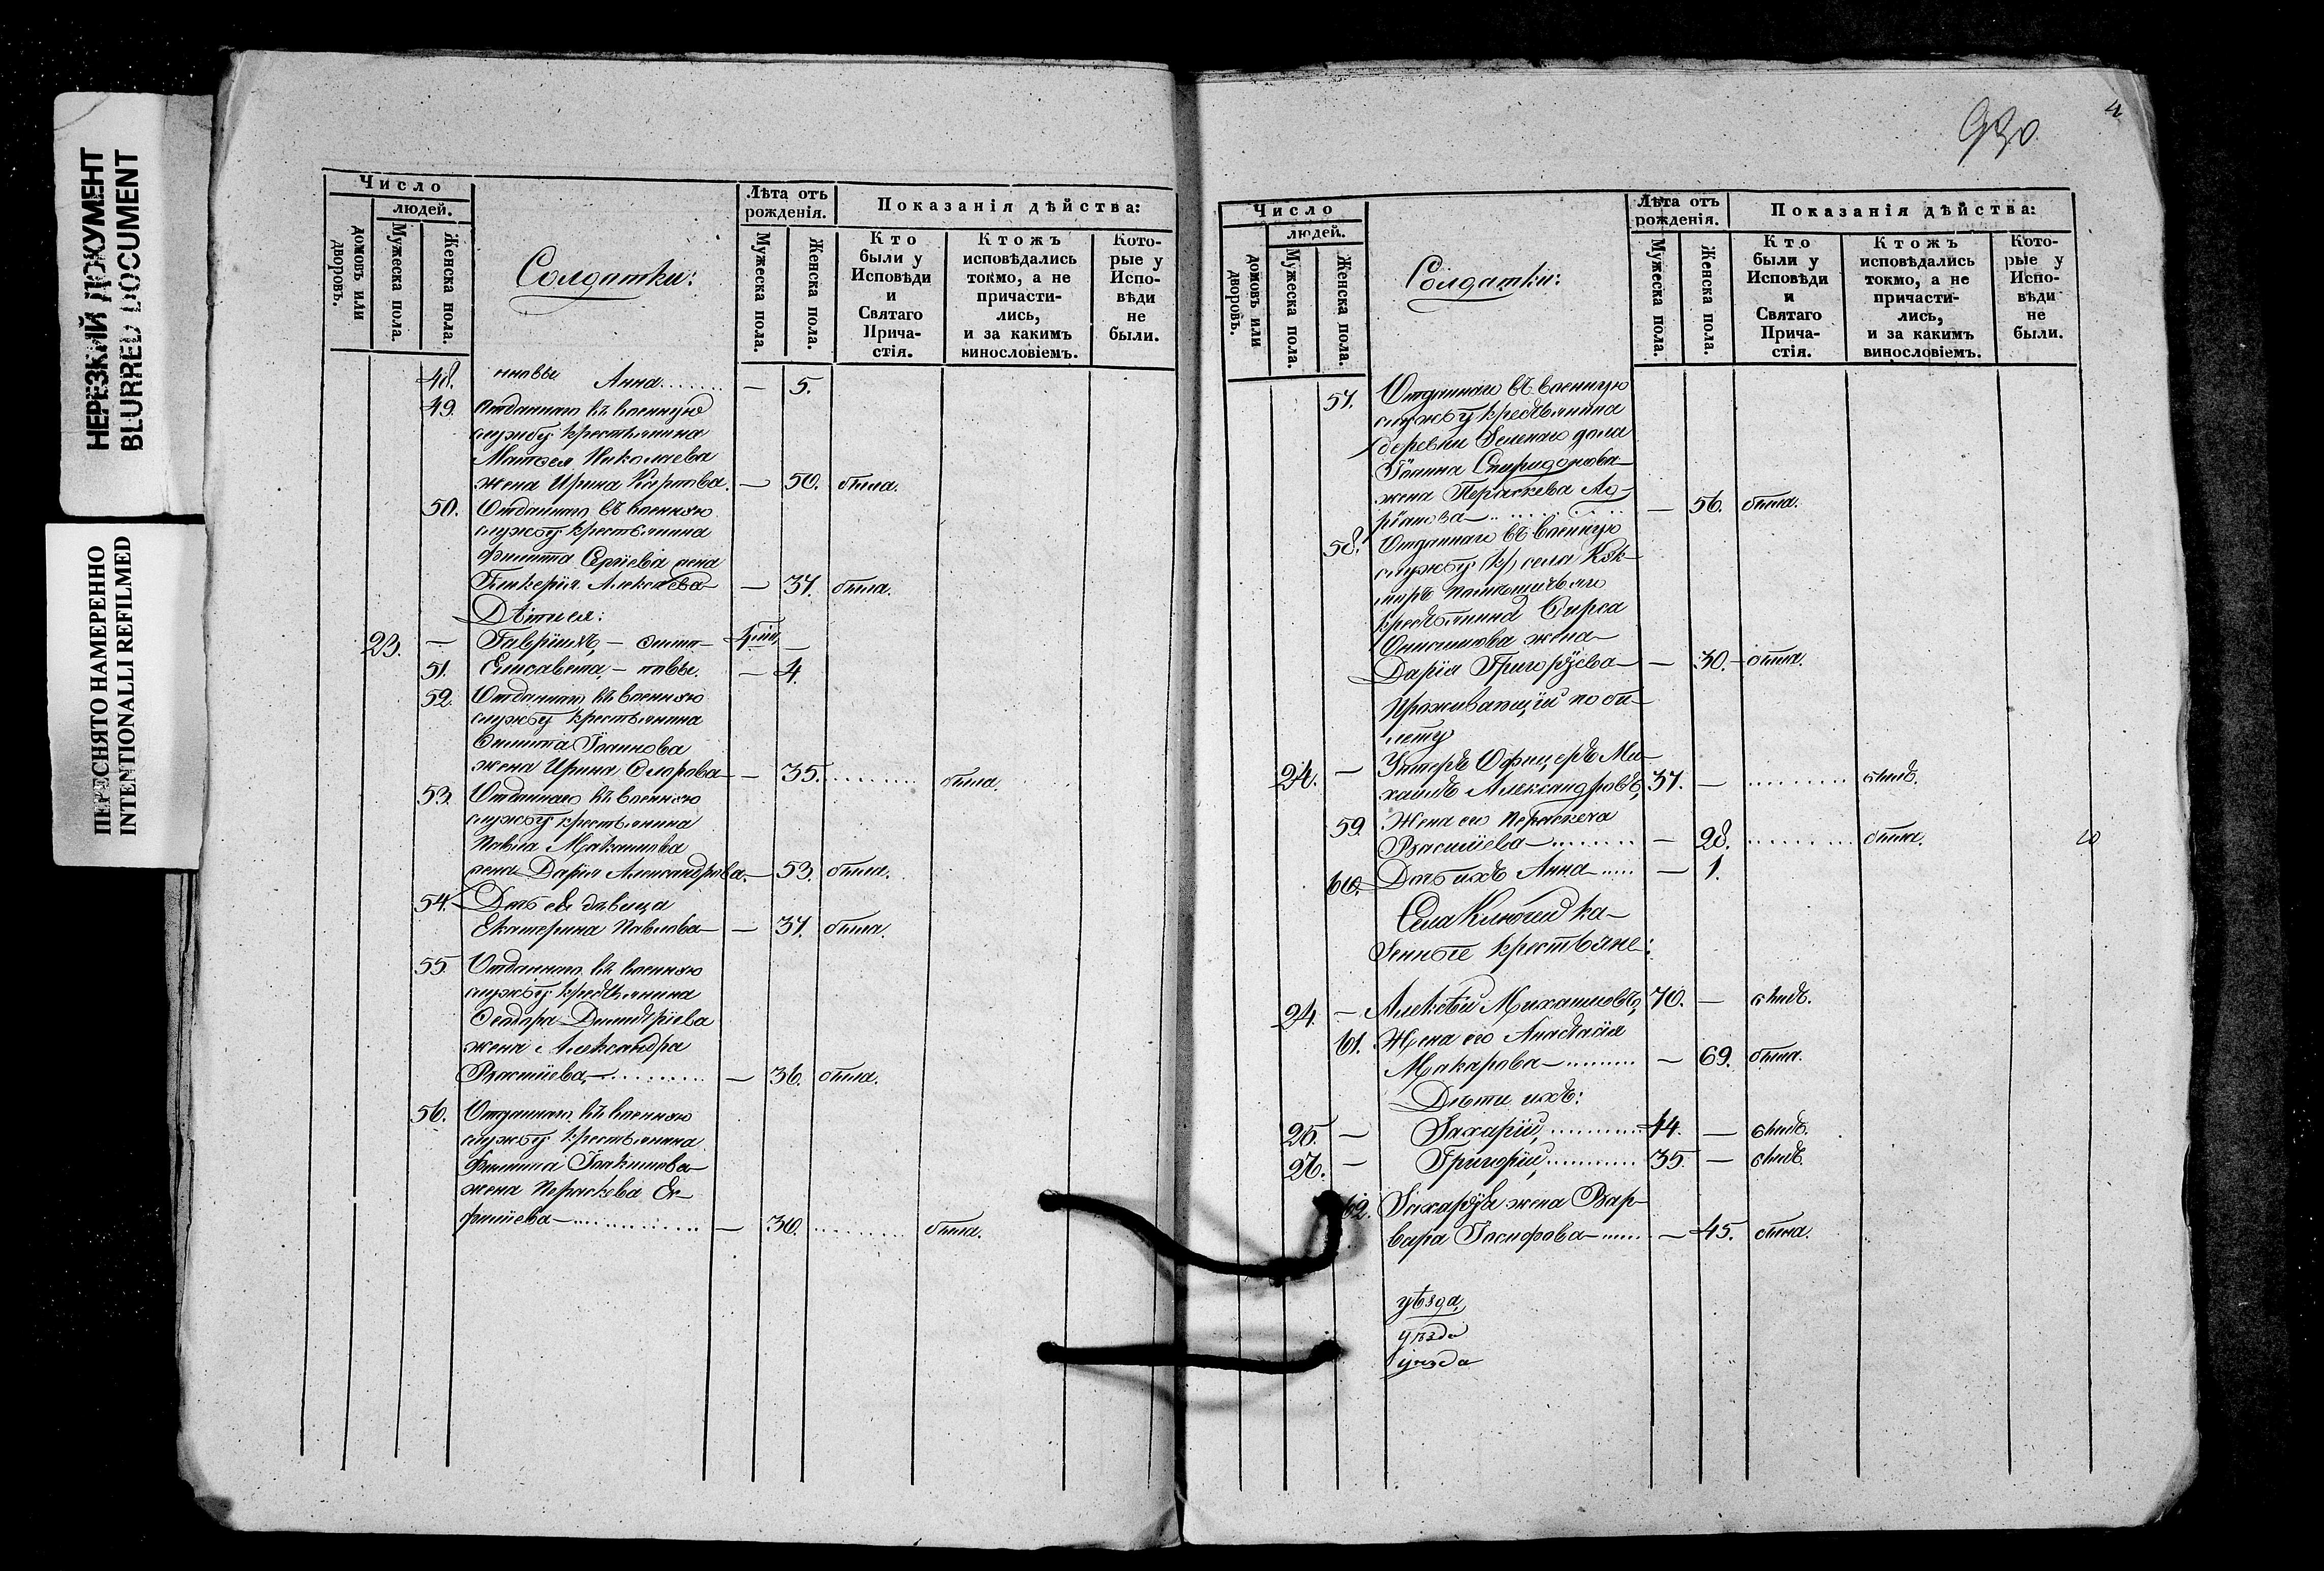 НЕРЕЗКИЙ ДОКУМЕНТ
BLURRED DOCUMENT
ПЕРЕСНЯТО НАМЕРЕННО
INTENTIONALLI REFILMED
Число
людей.
домовъ или дворовъ.
Мужеска пола.
Женска пола.
Солдатки:
Лѣта отъ рожденія.
Мужеска пола.
Женска пола.
Показанія дѣйства:
Кто были у Исповѣди и Святаго Прича-стія.
Ктожъ исповѣдались токмо, а не причасти-лись, и за какимъ винословіемъ.
Кото-рые у Испо-вѣди не были.
48. Анна........ — 5.
49. Отданнаго въ военную
службу крестьянина
Матѳея Николаева
жена Ирина Карпова. — 50. была.
50. Отданнаго въ военную
службу крестьянина
Филиппа Сергіева жена
Гликерія Алексѣева — 37. была.
Дѣти ея:
23. — Гавріилъ, —
51. Елисавета, — — 4.
52. Отданнаго въ военную
службу крестьянина
Іоаннова
жена Ирина — 35. ......... была.
53. Отданнаго въ военную
службу крестьянина
Павла Максимова
жена Дарія Александрова. — 53. была.
54. Дочь ея дѣвица
Екатерина Павлова — 37. была.
55. Отданнаго въ военную
службу крестьянина
Ѳеодора Димитріева
жена Александра
Василіева, — .......... — 36. была.
56. Отданнаго въ военную
службу крестьянина
Филиппа Іоакимова
жена Параскева Ев-
фиміева — ............ — 30. ......... была.
930
4
Число
людей.
домовъ или дворовъ.
Мужеска пола.
Женска пола.
Солдатки:
Лѣта отъ рожденія.
Мужеска пола.
Женска пола.
Показанія дѣйства:
Кто были у Исповѣди и Святаго Прича-стія.
Ктожъ исповѣдались токмо, а не причасти-лись, и за какимъ винословіемъ.
Кото-рые у Испо-вѣди не были.
57. Отданнаго въ военную
службу крестьянина
деревни Зеленаго дола
Іоанна Спиридонова
жена Параскева Ад-
ріанова — ............ — 56. была.
58. Отданнаго въ военную
службу села
крестьянина Фирса
Онисимова жена
Дарія Григоріева — — 30. — была.
Проживающій по би-
лету
24. — Унтеръ Офицеръ Ми-
хаилъ Александровъ, 37. — ......... былъ.
59. Жена его Параскева
Василіева — ........ — 28. ......... была.
60. Дочь ихъ Анна — ..... — 1.
Села Ключей ка-
зенные крестьяне:
24. — Алексѣй Михаиловъ, 70. — былъ.
61. Жена его Анастасія
Макарова — ......... — 69. была.
Дѣти ихъ:
25. — Захарій, ............ 44. — былъ.
26. — Григорій, ........... 35. — былъ.
62. Захарія жена Вар-
вара Іосифова — ...... — 45. была.
уѣзда,
уѣзда
уѣзда